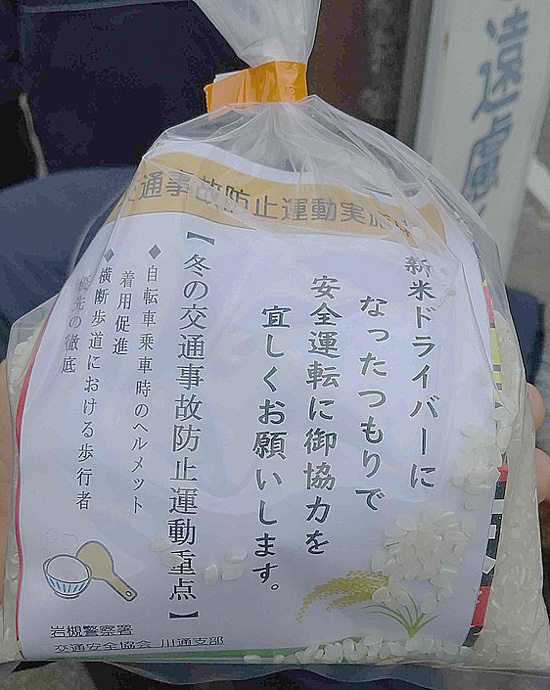 交通事故防止運動実施中
新米ドライバーに
なったつもりで
安全運転に御協力を
宜しくお願いします。
【冬の交通事故防止運動重点】
◆自転車乗車時のヘルメット
着用促進
◆横断歩道における歩行者
優先の徹底
岩槻警察署
交通安全協会 川通支部
遠慮